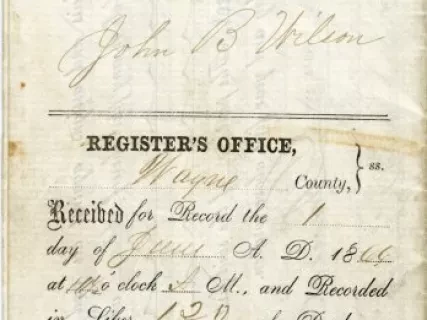 John B Wilson
REGISTER'S OFFICE,
Wayne County, } ss.
Received for Record the 1
day of June A. D. 1866
at o'clock M., and Recorded
in Liber 120